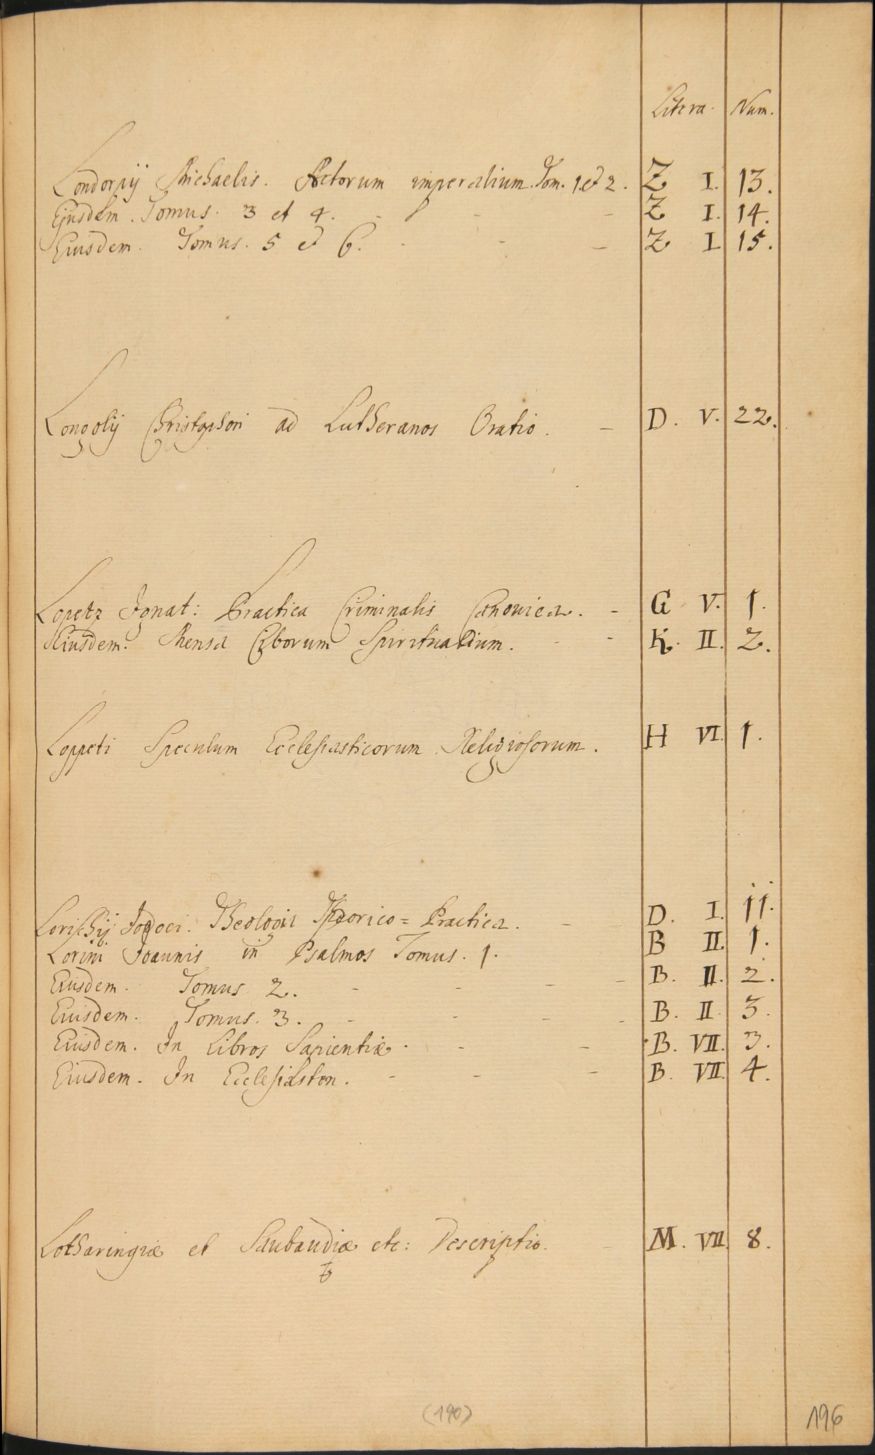 Litera. Num.
Londorpij Michaelis. Actorum imperialium. Tom. 1 et 2. Z I. 13.
Ejusdem. Tomus. 3 et 4. - - - Z I. 14.
Eiusdem. Tomus. 5 et 6. - - - Z I. 15.
Longolij Christophori ad Lutheranos Oratio. - D. V. 22.
Lopetz Ignat: Practica Criminalis Canonica. - G V. 1.
Eiusdem. Mensa Ciborum Spiritualium. - - K. II. 2.
Loppeti Speculum Ecclesiasticorum Religiosorum. H VI. 1.
Lorichij Jodoci. Theologia = Practica. - D. I. 11.
Lorini Joannis in Psalmos Tomus. 1. B II. 1.
Eiusdem. Tomus 2. - - - - B. II. 2.
Eiusdem. Tomus. 3. - - - - B. II 3.
Eiusdem. In Libros Sapientiæ. - - B. VII. 3.
Eiusdem. In Ecclesiasten. - - - B. VII. 4.
Lotharingiæ et Saubaudiæ etc: Descriptio. M. VII. 8.
(190)
196